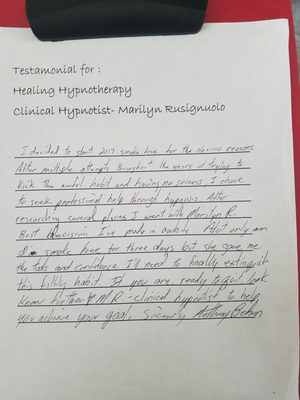 Testamonial for :
Healing Hypnotherapy
Clinical Hypnotist- Marilyn Rusignuolo
I decided to start 2017 smoke free for the obvious reasons.
After multiple attempts throughout the years of trying to
kick the awful habit and having no success, I chose
to seek professional help through hypnosis. After
researching several places I went with Marilyn R.
Best decision I've made in awhile. Not only am
I smoke free for three days but she gave me
the tools and confidence I'll need to finally extinguish
this filthy habit. If you are ready to quit look
know further M.R - clinical hypnotist to help
you achieve your goal. Sincerely, Anthony